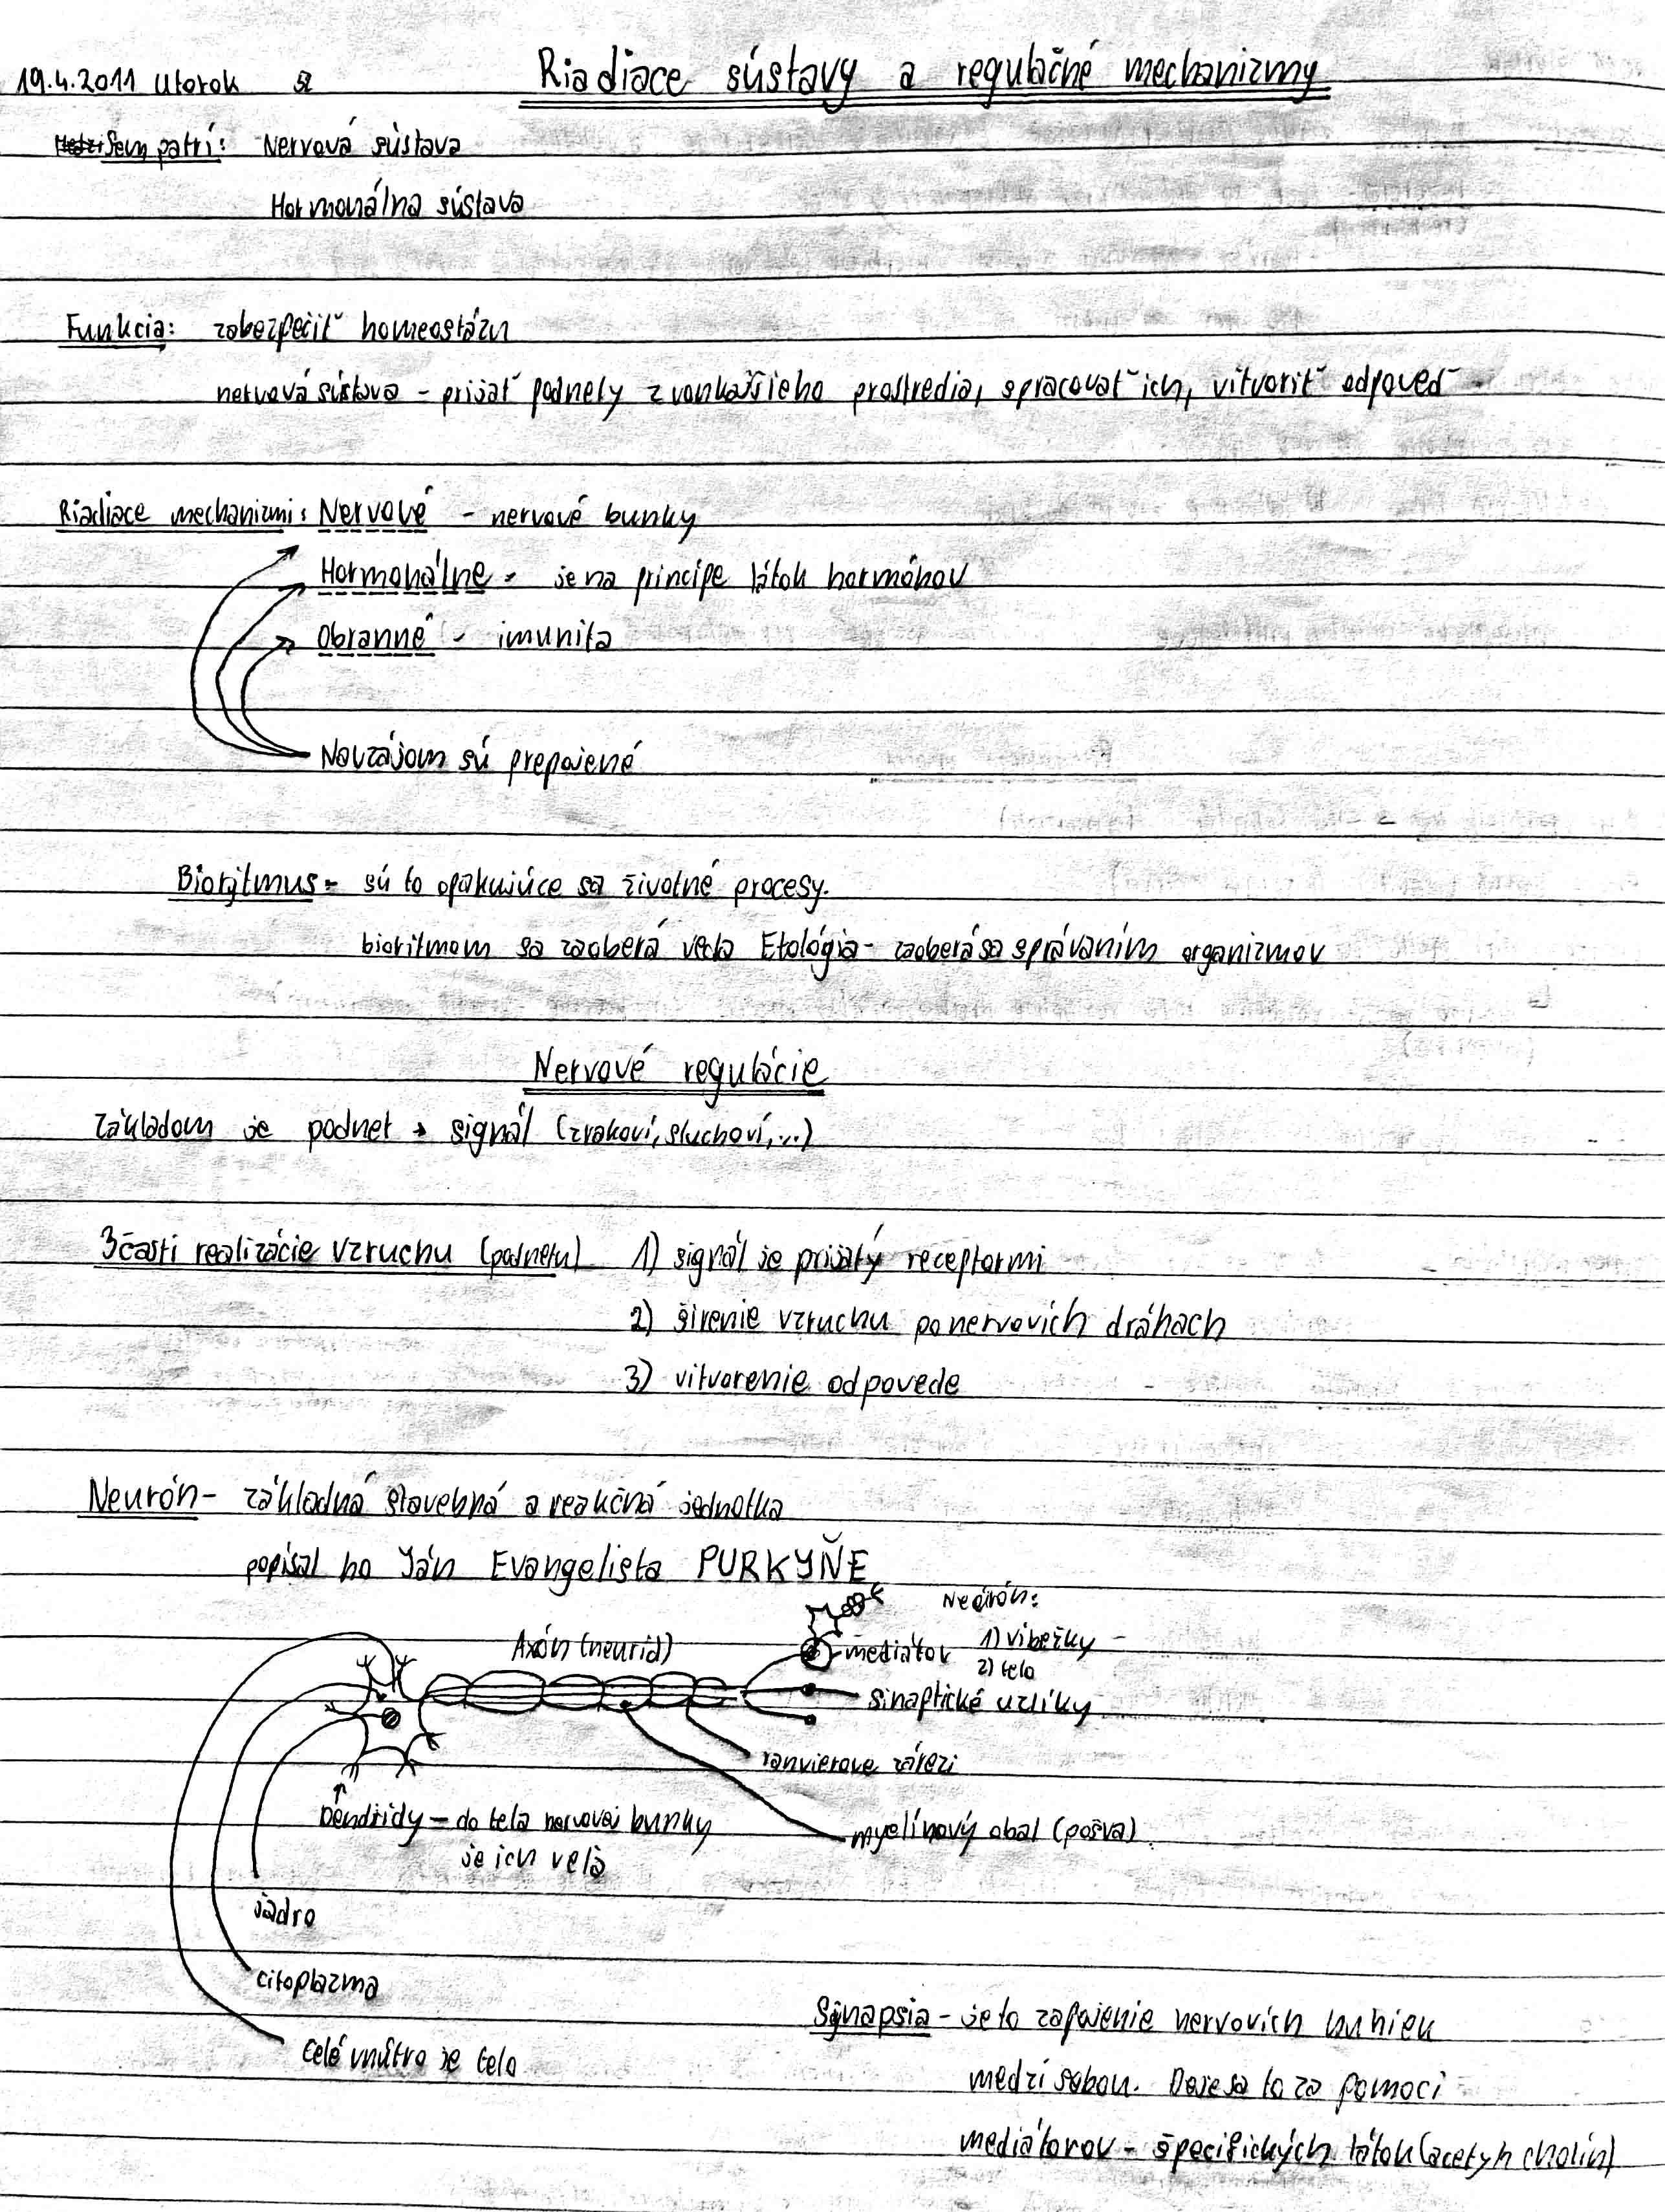 19.4.2011 Utorok
Riadiace sústavy a regulačné mechanizmy
Sem patrí: Nervová sústava
Hormonálna sústava
Funkcia: zabezpečiť homeostázu
nervová sústava - prijať podnety z vonkajšieho prostredia, spracovať ich, vitvoriť odpoveď
Riadiace mechanizmi: Nervové - nervové bunky
Hormonálne - je na princípe látok hormónov
Obranné - imunita
Navzájom sú prepojené
Biorytmus - sú to opakujúce sa životné procesy.
bioritmom sa zaoberá veda Etológia - zaoberá sa správaním organizmov
Nervové regulácie
základom je podnet → signál (zrakoví, sluchoví,...)
3 časti realizácie vzruchu (podnetu) 1) signál je prijatý receptormi
2) šírenie vzruchu po nervovích dráhach
3) vitvorenie odpovede
Neurón - základná stavebná a reakčná jednotka
popísal ho Ján Evangelista PURKYŇE
Neurón:
Axón (neurid)
mediátor
1) vibežky -
2) telo
sinaptické uzlíky
ranvierove zárezi
Dendridy - do tela nervovej bunky
je ich veľa
myelínový obal (pošva)
jadro
citoplazma
Celé vnútro je telo
Synapsia - je to zapojenie nervovích buniek
medzi sebou. Deje sa to za pomoci
mediátorov - špecifických látok (acetyh cholín)